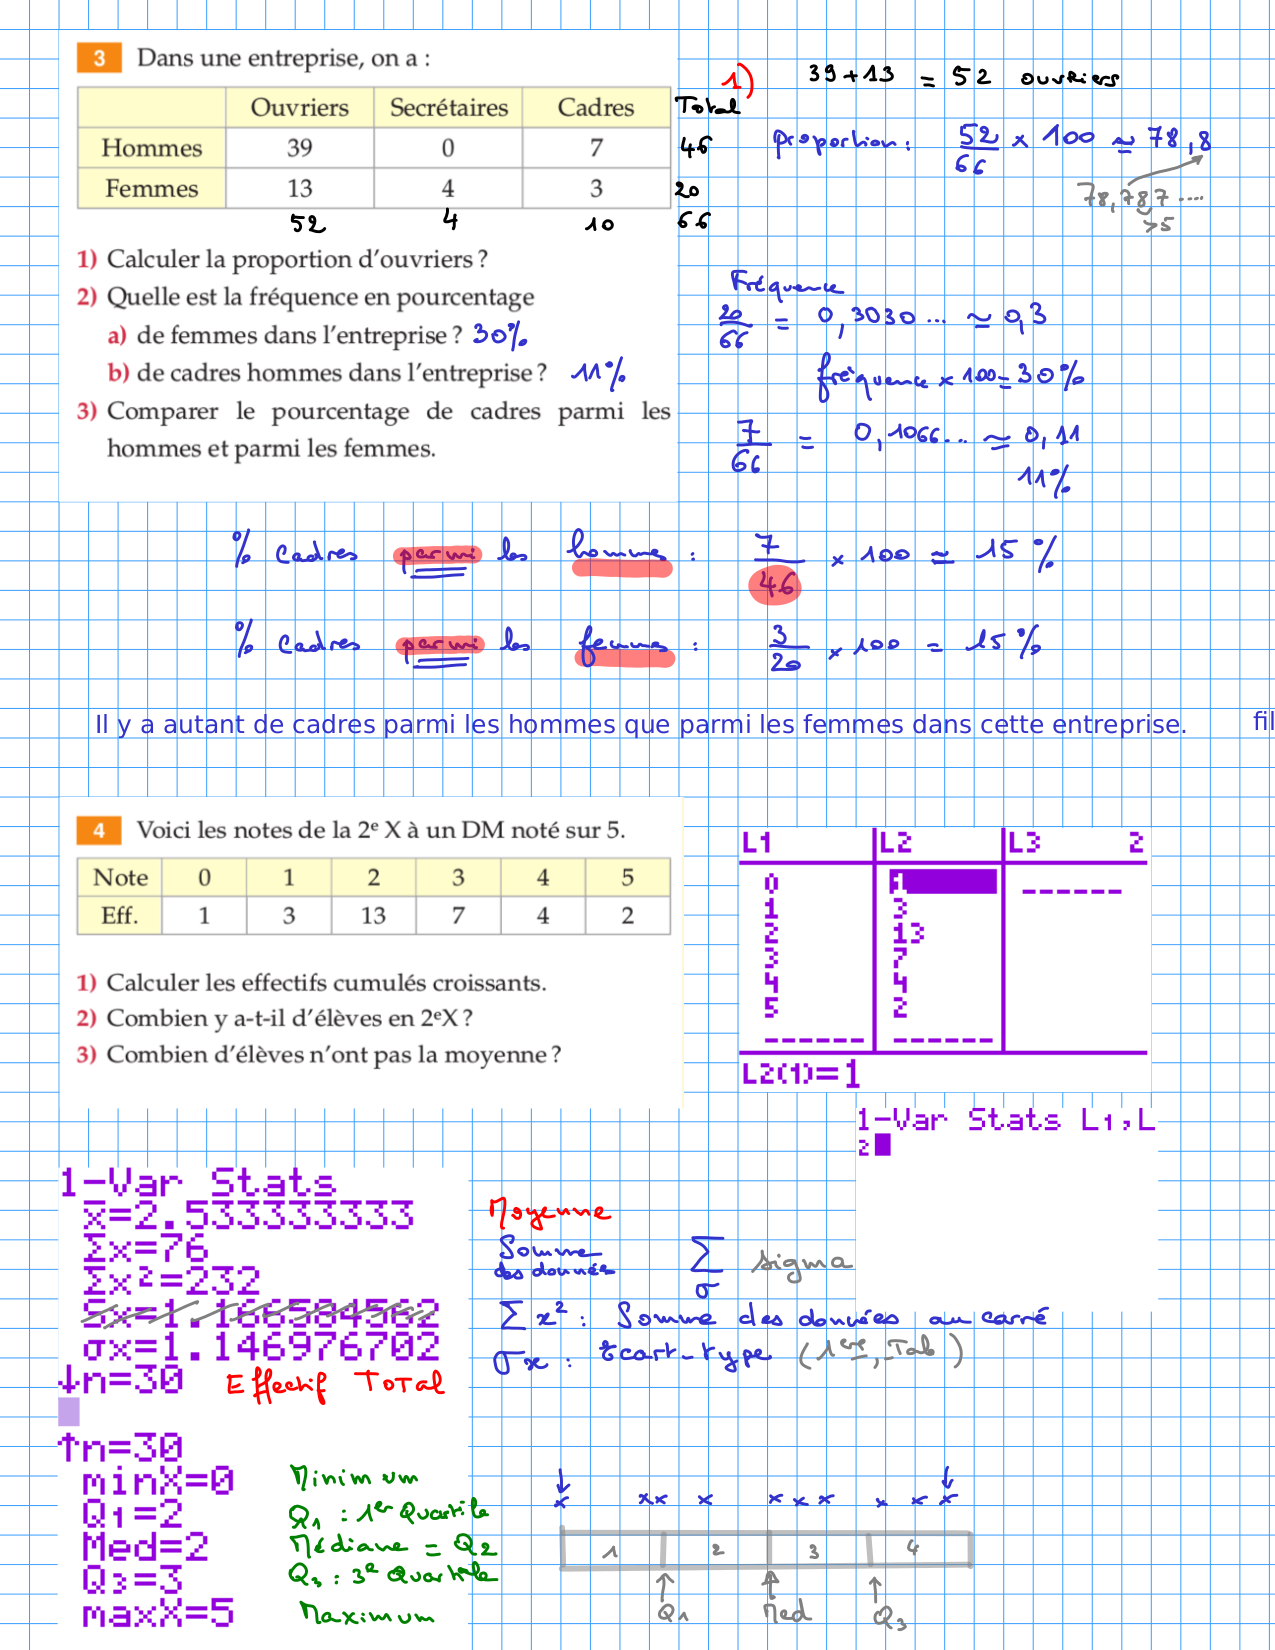 3 Dans une entreprise, on a :
Ouvriers Secrétaires Cadres Total
Hommes 39 0 7 46
Femmes 13 4 3 20
52 4 10 66
1) Calculer la proportion d'ouvriers ?
2) Quelle est la fréquence en pourcentage
a) de femmes dans l'entreprise ? 30%
b) de cadres hommes dans l'entreprise ? 11%
3) Comparer le pourcentage de cadres parmi les
hommes et parmi les femmes.
1) 39+13 = 52 ouvriers
proportion : 52/66 × 100 ≃ 78,8
78,787....
>5
Fréquence
20/66 = 0,3030... ≃ 0,3
fréquence × 100 = 30%
7/66 = 0,1066... ≃ 0,11
11%
% cadres parmi les hommes : 7/46 × 100 ≃ 15 %
% cadres parmi les femmes : 3/20 × 100 = 15 %
Il y a autant de cadres parmi les hommes que parmi les femmes dans cette entreprise.
fil
4 Voici les notes de la 2e X à un DM noté sur 5.
Note 0 1 2 3 4 5
Eff. 1 3 13 7 4 2
1) Calculer les effectifs cumulés croissants.
2) Combien y a-t-il d'élèves en 2eX ?
3) Combien d'élèves n'ont pas la moyenne ?
L1 L2 L3 2
0 1 ------
1 3
2 13
3 7
4 4
5 2
------ ------
L2(1)=1
1-Var Stats L1,L
2
1-Var Stats
x̄=2.533333333
Σx=76
Σx²=232
Sx=1.166584562
σx=1.146976702
↓n=30 Effectif Total
Moyenne
Somme des données Σ sigma
σ
Σx² : Somme des données au carré
σx : Ecart-type (1ère, Tab)
↑n=30
minX=0 Minimum
Q1=2 Q1 : 1er Quartile
Med=2 Médiane = Q2
Q3=3 Q3 : 3e Quartile
maxX=5 Maximum
1 2 3 4
Q1 Med Q3